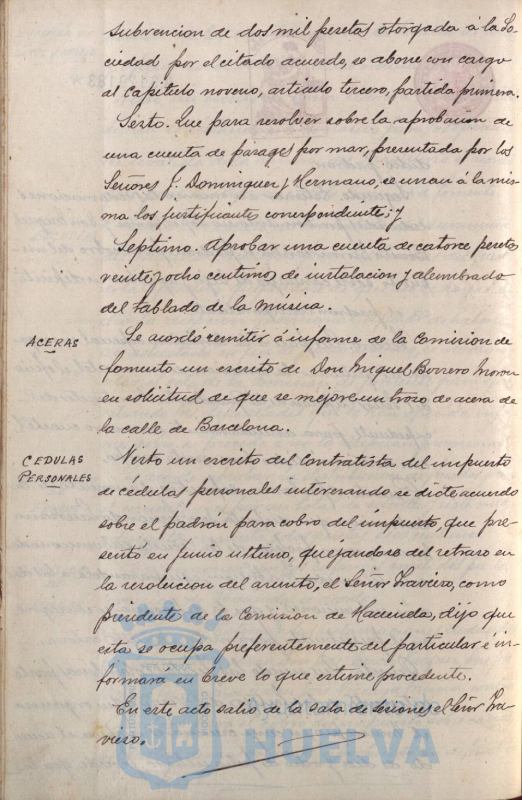 subvencion de dos mil pesetas otorgada á la So-
ciedad por el citado acuerdo, se abone con cargo
al Capitulo noveno, articulo tercero, partida primera.
Sexto. Que para resolver sobre la aprobacion de
una cuenta de pasages por mar, presentada por los
Señores J. Dominguez y Hermano, se unan á la mis-
ma los justificantes correspondientes; y
Septimo. Aprobar una cuenta de catorce pesetas
veinte y ocho centimos de instalacion y alumbrado
del tablado de la música.
ACERAS
Se acordó remitir á informe de la Comision de
fomento un escrito de Don Miguel Borrero Moron
en solicitud de que se mejore un trozo de acera de
la calle de Barcelona.
CEDULAS
PERSONALES
Visto un escrito del Contratista del impuesto
de cédulas personales interesando se dicte acuerdo
sobre el padrón para cobro del impuesto, que pre-
sentó en Junio ultimo, quejandose del retraso en
la resolucion del asunto, el Señor Travieso, como
presidente de la Comision de Hacienda, dijo que
esta se ocupa preferentemente del particular é in-
formara en breve lo que estime procedente.
En este acto salio de la sala de sesiones el Señor Tra-
vieso.
HUELVA